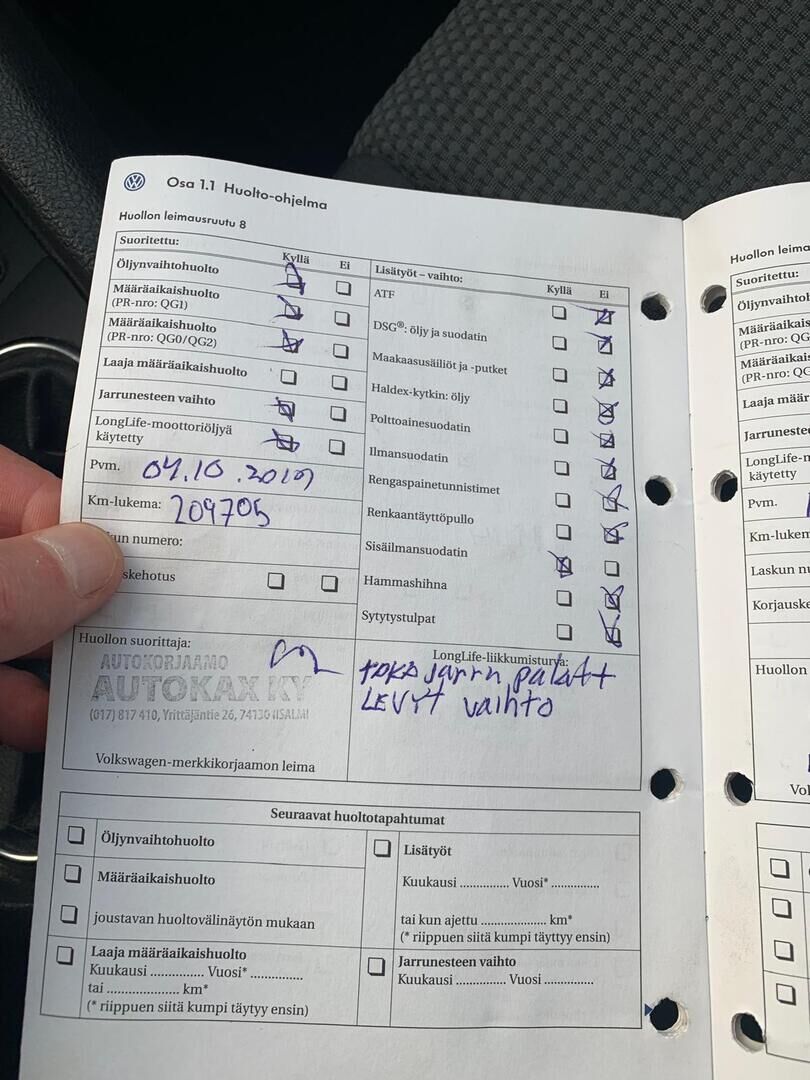 Osa 1.1 Huolto-ohjelma
Huollon leimausruutu 8
Suoritettu:
Kyllä Ei
Öljynvaihtohuolto
Määräaikaishuolto
(PR-nro: QG1)
Määräaikaishuolto
(PR-nro: QG0/QG2)
Laaja määräaikaishuolto
Jarrunesteen vaihto
LongLife-moottoriöljyä
käytetty
Pvm. 04.10.2019
Km-lukema: 209705
un numero:
skehotus
Lisätyöt – vaihto:
Kyllä Ei
ATF
DSG®: öljy ja suodatin
Maakaasusäiliöt ja -putket
Haldex-kytkin: öljy
Polttoainesuodatin
Ilmansuodatin
Rengaspainetunnistimet
Renkaantäyttöpullo
Sisäilmansuodatin
Hammashihna
Sytytystulpat
Huollon suorittaja:
AUTOKORJAAMO
AUTOKAX KY
(017) 817 410, Yrittäjäntie 26, 74130 IISALMI
Volkswagen-merkkikorjaamon leima
LongLife-liikkumisturva:
TAKA jarru palatt
LEVYT vaihto
Seuraavat huoltotapahtumat
Öljynvaihtohuolto
Määräaikaishuolto
joustavan huoltovälinäytön mukaan
Laaja määräaikaishuolto
Kuukausi ............... Vuosi* ..............
tai .................... km*
(* riippuen siitä kumpi täytyy ensin)
Lisätyöt
Kuukausi .............. Vuosi* ..............
tai kun ajettu .................. km*
(* riippuen siitä kumpi täyttyy ensin)
Jarrunesteen vaihto
Kuukausi .............. Vuosi ..............
Huollon leima
Suoritettu:
Öljynvaihtohuol
Määräaikaishuol
(PR-nro: QG
Määräaikaishuol
(PR-nro: QG
Laaja määr
Jarrunestee
LongLife-m
käytetty
Pvm.
Km-lukem
Laskun nu
Korjauske
Huollon
Vol